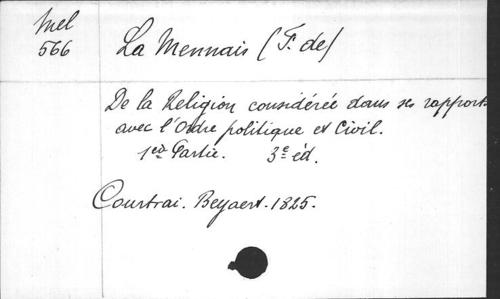 Mel
566
La Mennais (F. de)
De la Religion considérée dans ses rapports
avec l'Ordre politique et Civil.
1ère Partie. 3e éd.
Courtrai. Beyaert. 1825.